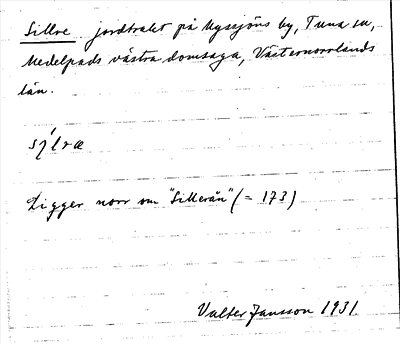 Sillre jordtrakt på Nyssjöns by, Tuna sn,
Medelpads västra domsaga, Västernorrlands
län.
Ligger norr om "Sillerån" (= 173)
Valter Jansson 1931.